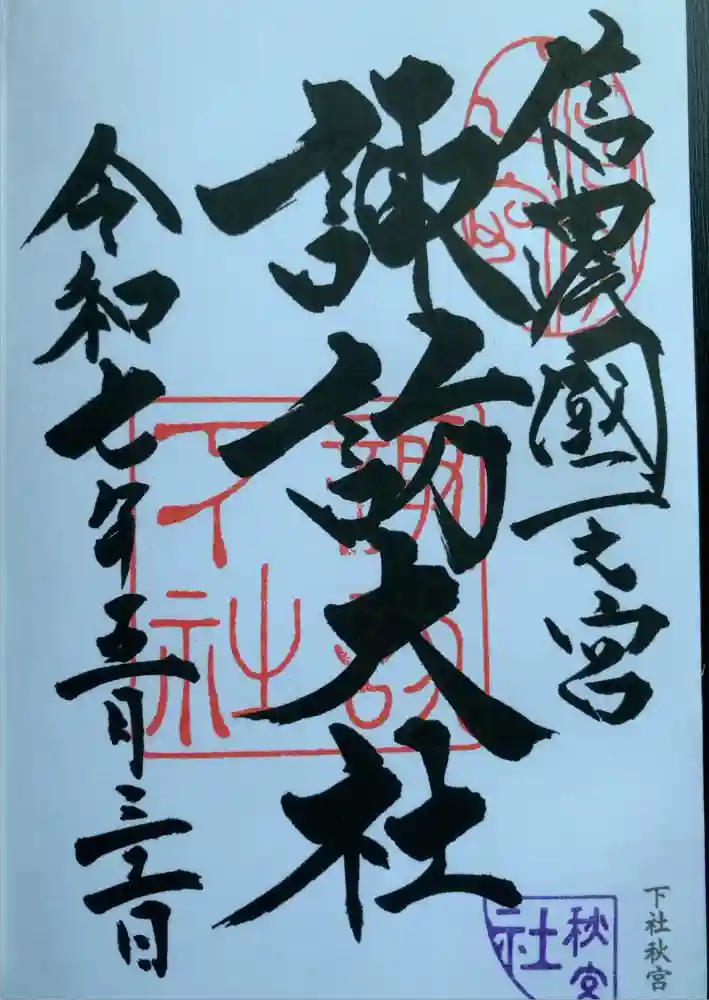 信濃國一之宮
諏訪大社
令和七年五月三十一日
諏訪
下社
秋宮
社
下社秋宮